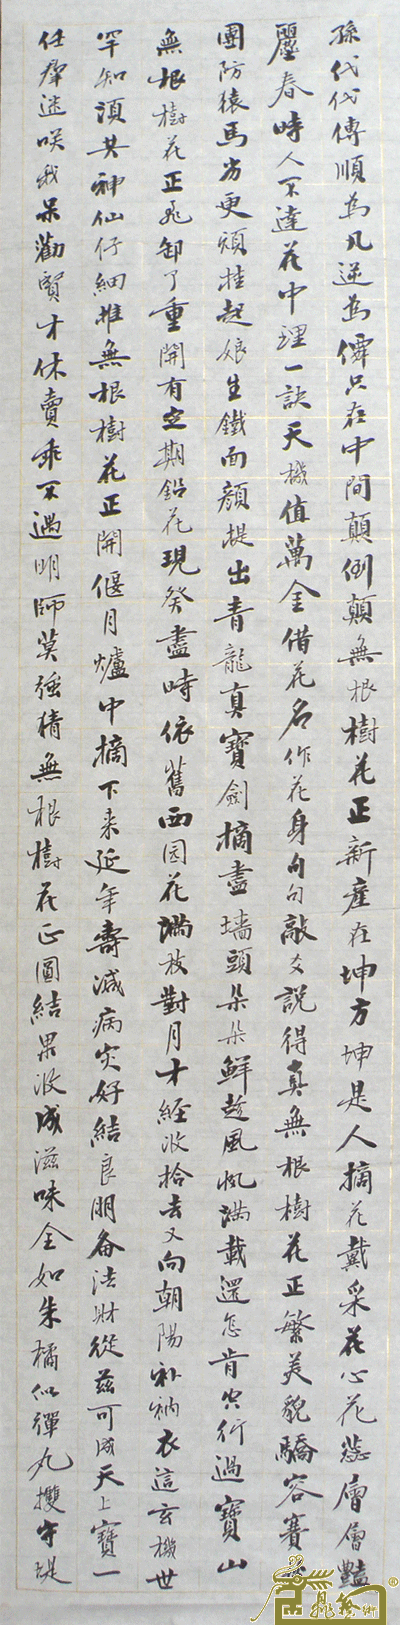 孫代代傳順為凡逆為僊只在中間顛倒顛無根樹花正新產在坤方坤是人摘花戴采花心花蕊層層豔
麗春時人不達花中理一訣天機值萬金借花名作花身句句敲爻說得真無根樹花正繁美貌驕容賽
團防猿馬劣更頑挂起娘生鐵面顏提出青龍真寶劍摘盡墻頭朵朵鮮趁風帆滿載還怎肯空行過寶山
無根樹花正飛卸了重開有定期鉛花現癸盡時依舊西园花滿放對月才經收拾去又向朝陽补衲衣這玄機世
罕知須共神仙仔細推無根樹花正開偃月爐中摘下来延年壽減病灾好結良朋备法財從茲可成天上寶一
任羣迷咲我呆勸賢才休賣乖不遇明師莫強猜無根樹花正圓結果收成滋味全如朱橘似彈丸擭守堤